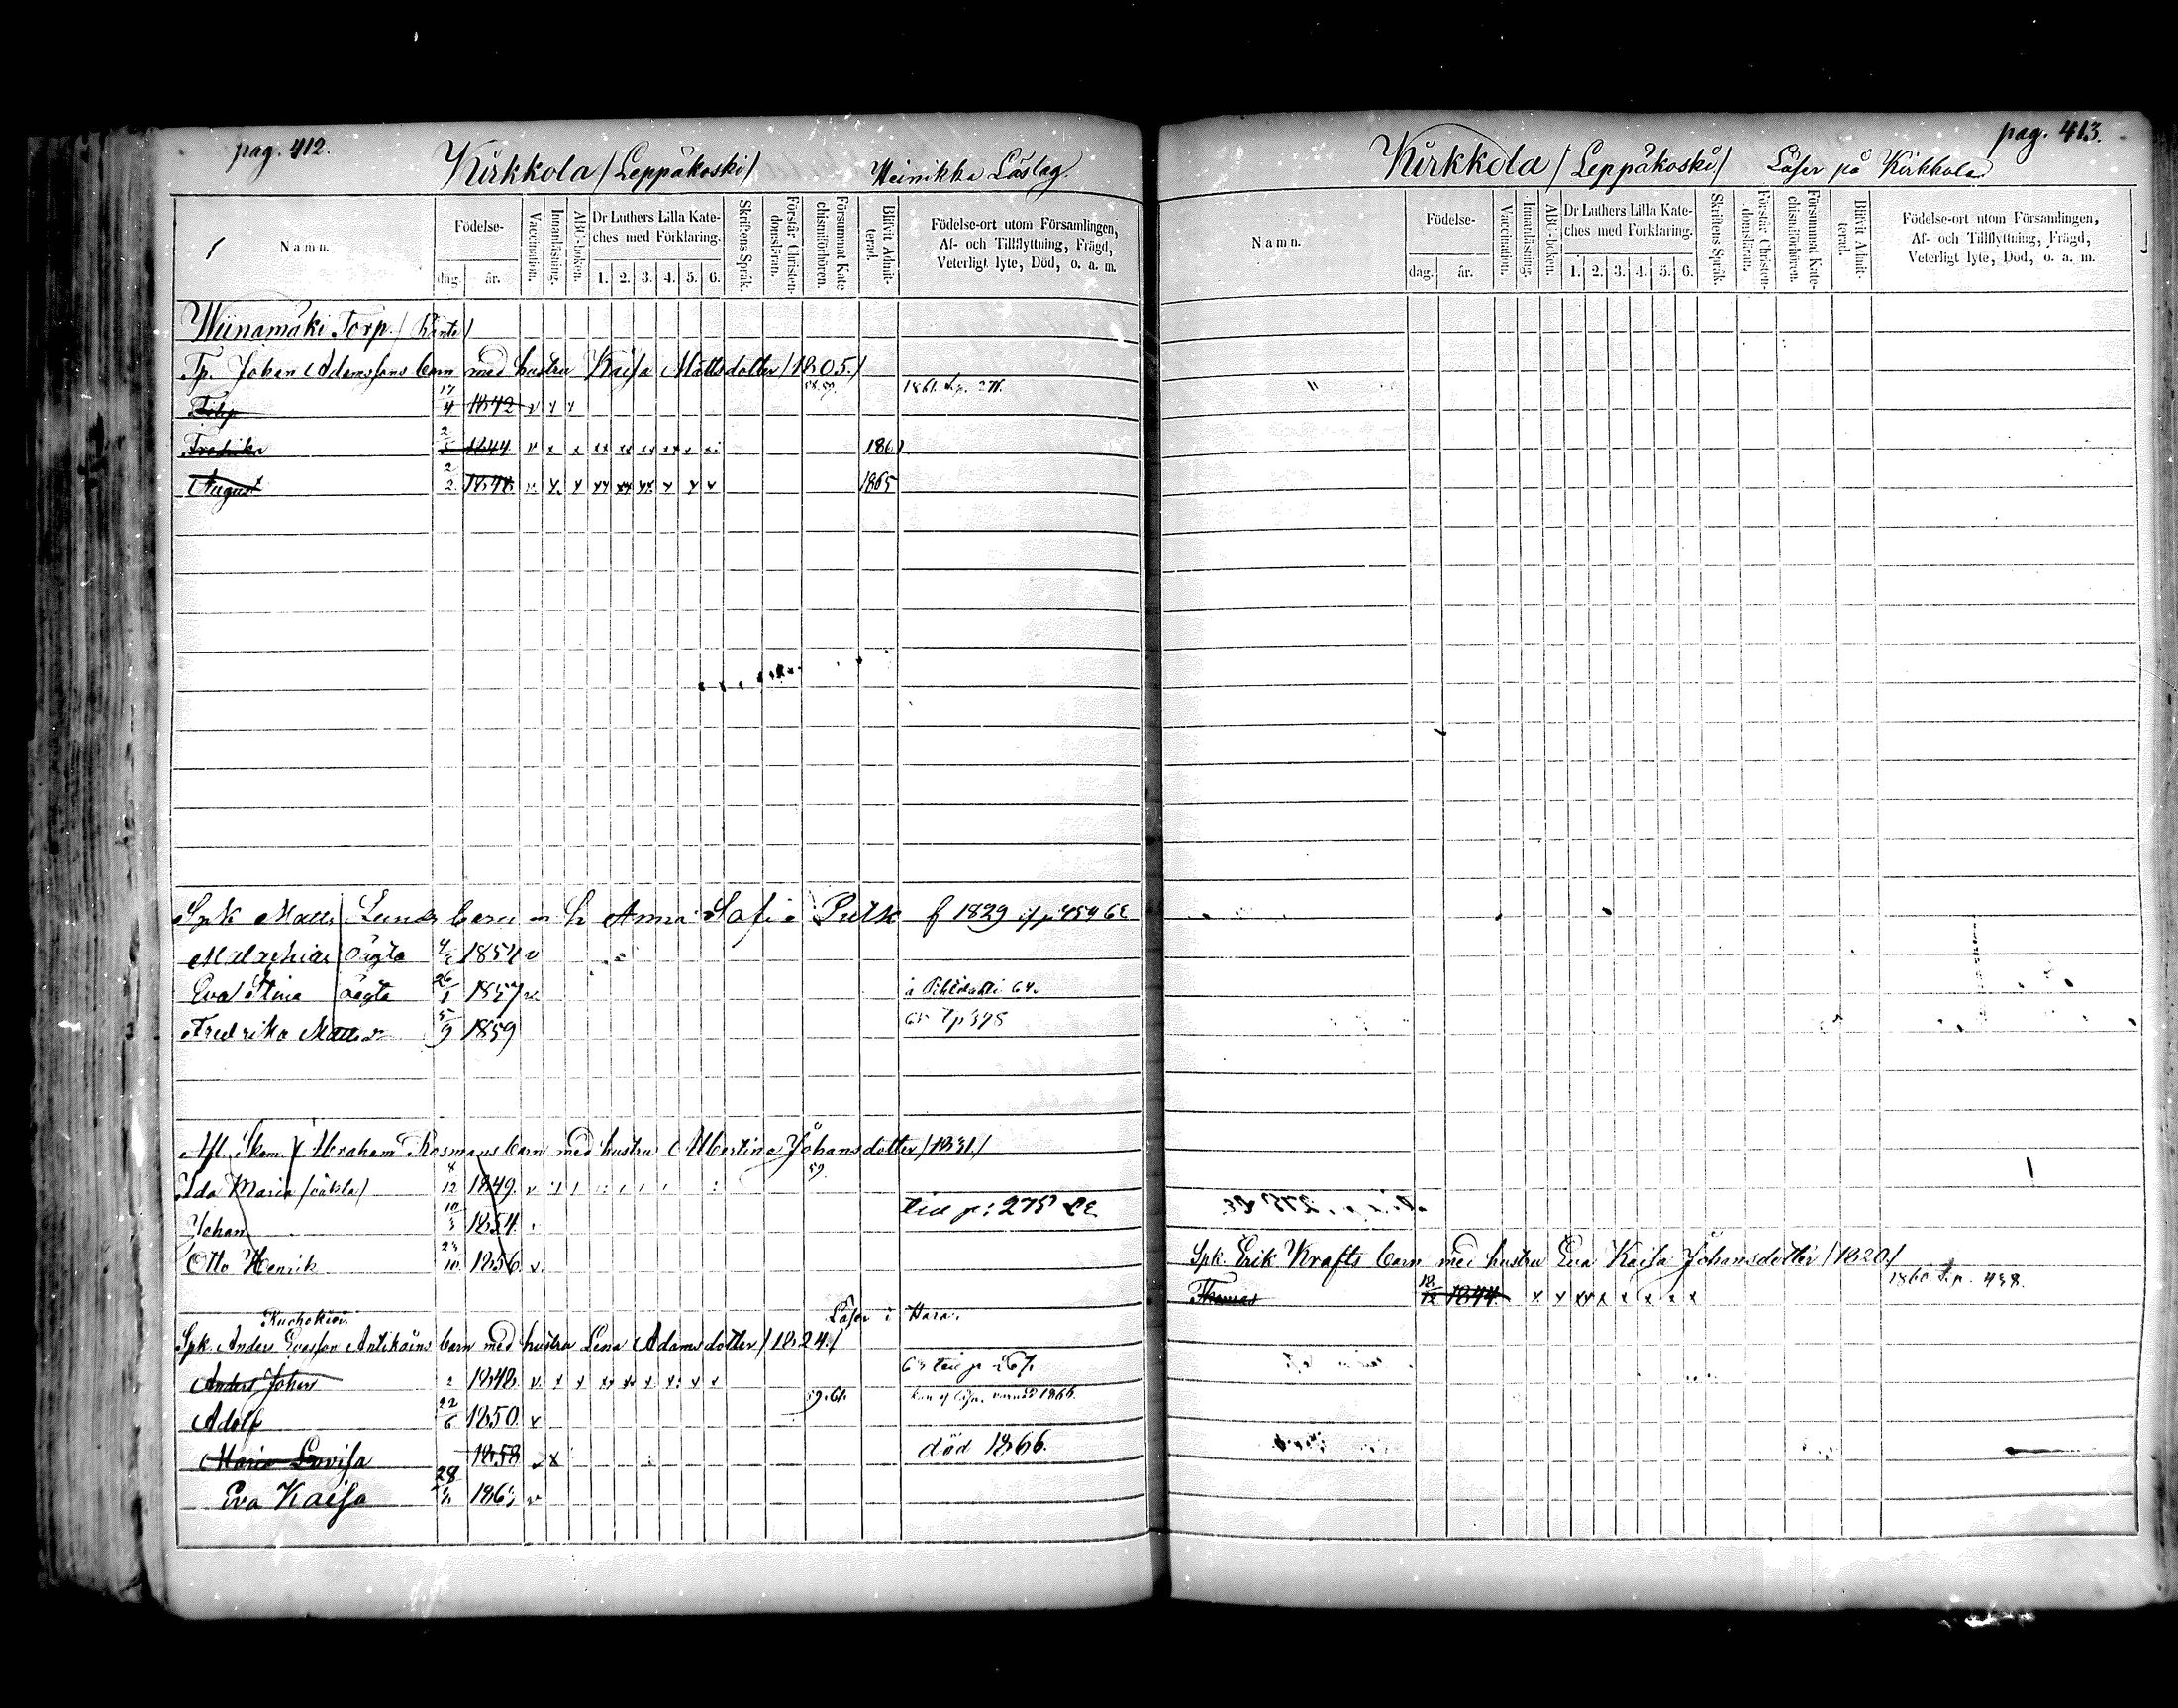 pag. 412.
Kirkkola / Leppäkoski / Heinikka Läslag.
Namn.
Födelse-
dag.
år.
Vaccination.
Innanläsning.
ABC-boken.
Dr Luthers Lilla Kate-
ches med Förklaring.
1. 2. 3. 4. 5. 6.
Skriftens Språk.
Förstår Christen-
domsläran.
Försummat Kate-
chismiförhören.
Blifvit Admit-
terad.
Födelse-ort utom Församlingen,
Af- och Tillflyttning, Frägd,
Veterligt lyte, Död, o. a. m.
Wiinamäki Torp.
Tp. Johan Adamssons barn med hustru Kaisa Mattsdotter / 1805. /
17/4 1842 v x x 1861
Fredrika 2/5 1844 v x x xx xx xx xx x x 1861
August 2/2 1848 v x x xx xx xx x x x 1865
Spk Matts Lunds barn m h Anna Sofia f 1829
 oägta 1854 v
Eva Stina oägta 26/1 1857 v 64.
Fredrika Mattsd 5/9 1859
Afl. Skom. Abraham Rosmans barn med hustru Albertina Johansdotter / 1831 /
Ida Maria 8/12 1849 v 59.
Johan 10/3 1854
Otto Henrik 23/10 1856 v
till p: 275
Läser i Hara.
Spk. Anders barn med hustru Lena Adamsdotter / 1824 /
Anders Johan 1848 v x x xx xx x x x x
Adolf 22/6 1850 v
Maria Lovisa 1858 x död 1866.
Eva Kaisa 28 1863 v
pag. 413.
Kirkkola / Leppäkoski / Läser på Kirkkola
Namn.
Födelse-
dag.
år.
Vaccination.
Innanläsning.
ABC-boken.
Dr Luthers Lilla Kate-
ches med Förklaring.
1. 2. 3. 4. 5. 6.
Skriftens Språk.
Förstår Christen-
domsläran.
Försummat Kate-
chismiförhören.
Blifvit Admit-
terad.
Födelse-ort utom Församlingen,
Af- och Tillflyttning, Frägd,
Veterligt lyte, Död, o. a. m.
Spk. Erik Krafts barn med hustru Eva Kaisa Johansdotter / 1820 /
Thomas 18/12 1844 x x xx x x x x x 438.